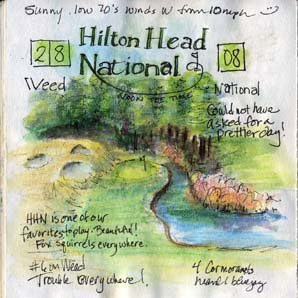 Sunny. low 70's winds W from 10 mph
28
Hilton Head
National
08
Weed
National
Could not have
asked for a
prettier day!
HHN is one of our
favorites to play. Beautiful!
Fox squirrels everywhere.
#6 on Weed
Trouble everywhere!
4 Cormorants